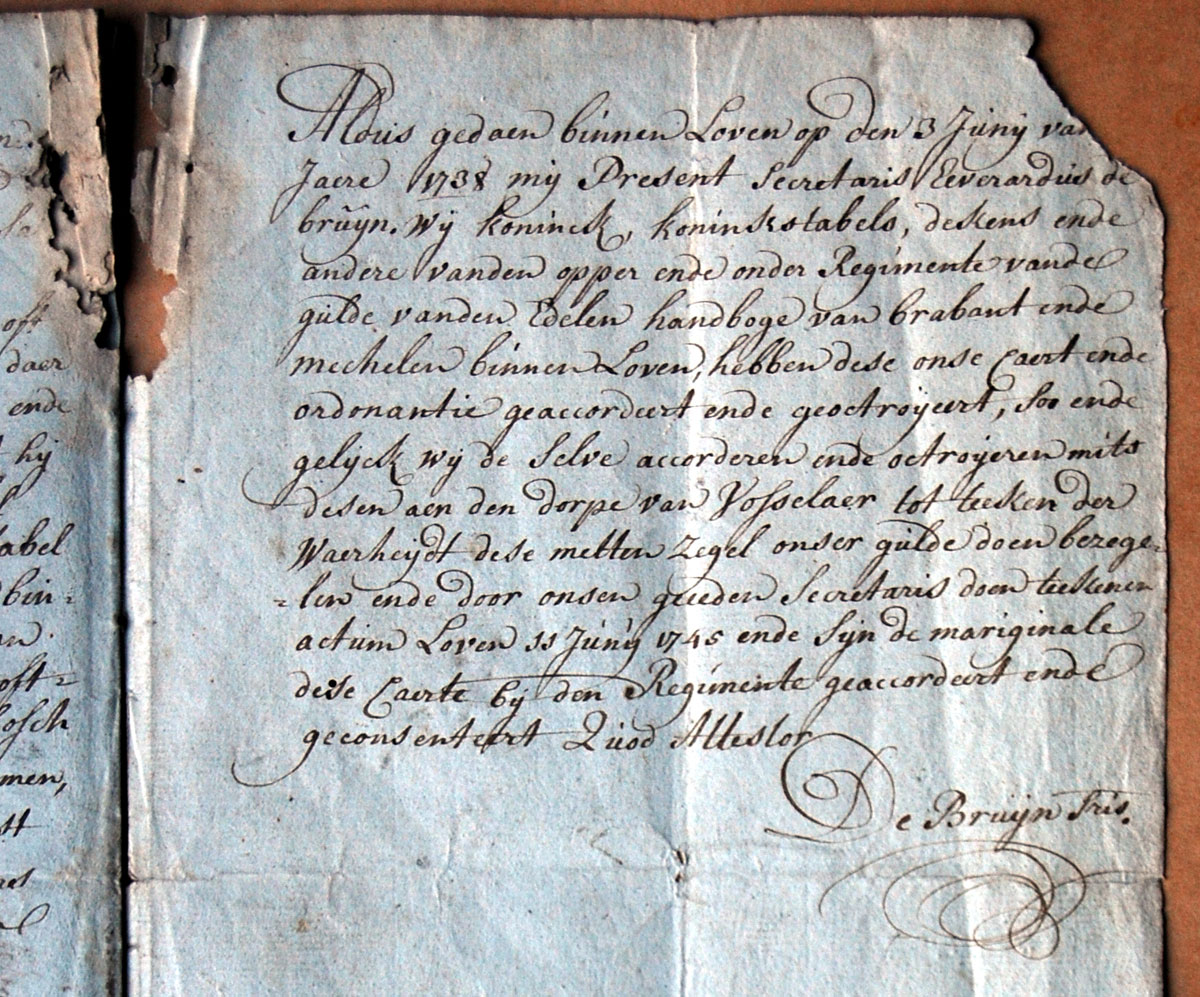 oft
daer
ende
hij
tabel
bin=
oft=
bosch
men,
Aldus gedaen binnen Loven op den 3 Junÿ van
Jaere 1738 mij Present Secretaris Eeverardus de
bruÿn. Wij koninck, koninskstabels, dekens ende
andere vanden opper ende onder Regimente vande
gulde vanden Edelen handboge van brabant ende
mechelen binnen Loven, hebben dese onse Caert ende
ordonantie geaccordeert ende geoctroÿeert, soo ende
gelyck wij de selve accorderen ende octroÿeren mits
desen aen den dorpe van Vosselaer tot teeken der
Waerheÿdt dese metten Zegel onser gulde doen bezege=
=len ende door onsen geeden Secretaris doen teekenen
actum Loven 11 Junÿ 1745 ende sijn de mariginale
dese Caerte bij den Regimente geaccordeert ende
geconsenteert Quod Attestor
De Bruÿn Sris.